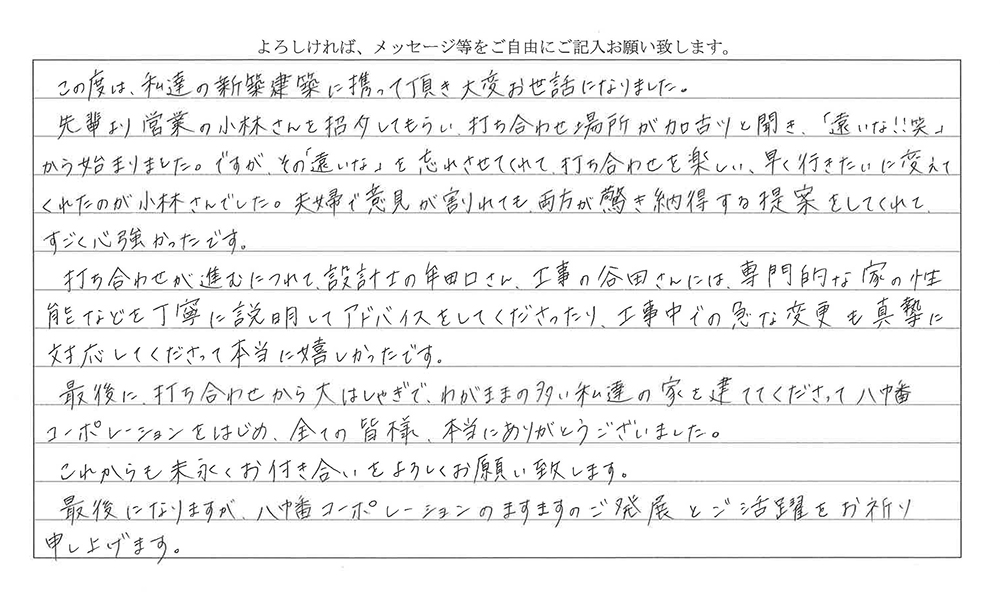 よろしければ、メッセージ等をご自由にご記入お願い致します。
この度は、私達の新築建築に携って頂き大変お世話になりました。
先輩より営業の小林さんを招介してもらい、打ち合わせ場所が加古川と聞き、「遠いな!!笑」
から始まりました。ですが、その「遠いな」を忘れさせてくれて、打ち合わせを楽しい、早く行きたいに変えて
くれたのが小林さんでした。夫婦で意見が割れても、両方が驚き納得する提案をしてくれて、
すごく心強かったです。
打ち合わせが進むにつれて、設計士の牟田口さん、工事の谷田さんには、専門的な家の性
能などを丁寧に説明してアドバイスをしてくださったり、工事中での急な変更も真摯に
対応してくださって本当に嬉しかったです。
最後に、打ち合わせから大はしゃぎで、わがままの多い私達の家を建ててくださって八幡
コーポレーションをはじめ、全ての皆様、本当にありがとうございました。
これからも末永くお付き合いをよろしくお願い致します。
最後になりますが、八幡コーポレーションのますますのご発展とご活躍をお祈り
申し上げます。